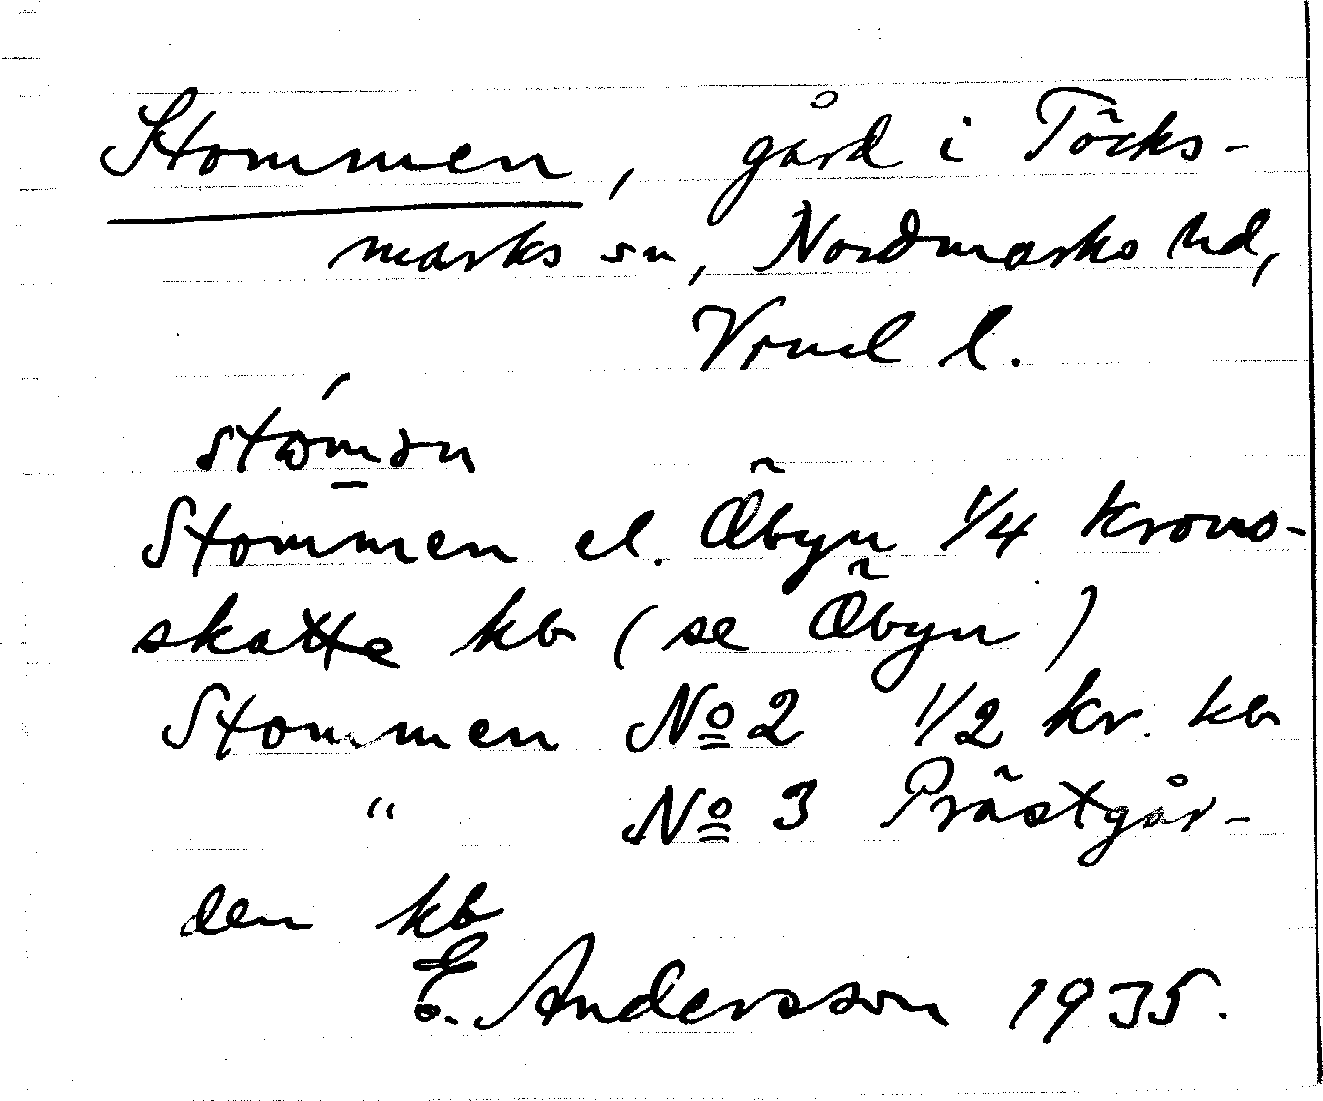 Stommen, gård i Töcks-
marks sn, Nordmarks hd,
Vrml l.
Stommen el. Öbyn 1/4 krono-
skatte kb (se Öbyn)
Stommen No 2 1/2 kr. kb
" No 3 Prästgår-
den kb
E. Andersson 1935.